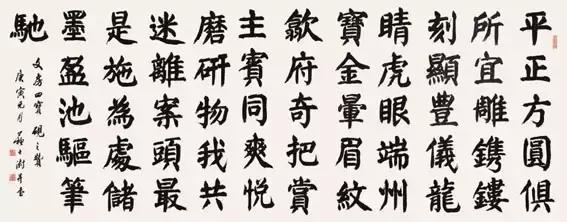 平正方圓俱
所宜雕鐫鏤
刻顯豊儀龍
睛虎眼端州
寶金暈眉紋
歙府奇把賞
主賓同爽悅
磨研物我共
迷離案頭最
是施為處儲
墨盈池驅筆
馳
文房四寶 硯之贊
庚寅元月 蘇士澍并書